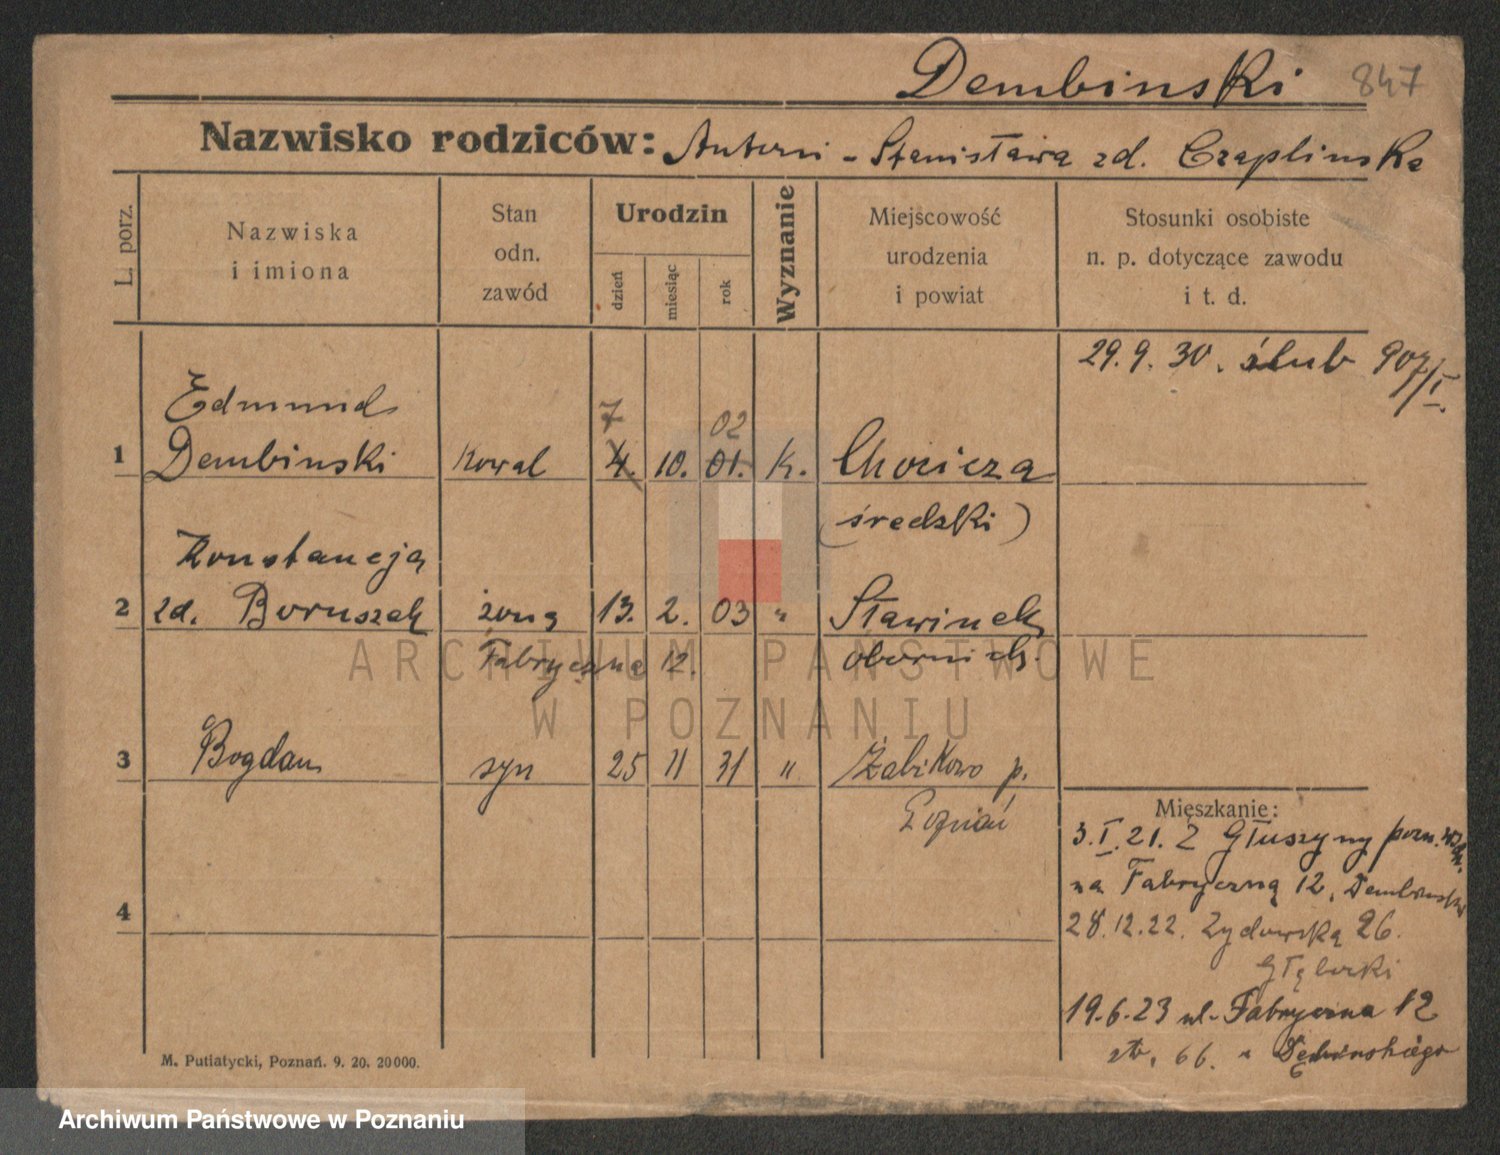 Dembinski 847
Nazwisko rodziców: Antoni - Stanisława zd. Czaplinska
L. porz.
Nazwiska
i imiona
Stan
odn.
zawód
Urodzin
dzień
miesiąc
rok
Wyznanie
Miejscowość
urodzenia
i powiat
Stosunki osobiste
n. p. dotyczące zawodu
i t. d.
29.9.30. ślub 907/I.
Edmund 7 02
1 Dembinski Kowal 4. 10. 01. K. Chocicza
(średzki)
Konstancja
2 zd. Boruszak żona 13. 2. 03 " Sławinek
Fabryczna 12. obornick.
3 Bogdan syn 25 11 31 " Żabikowo p.
Poznań
Mieszkanie:
3.I.21. Z Głuszyny pozn.
na Fabryczną 12.
4
28.12.22. Żydowską 26.
19.6.23 ul. Fabryczna 12
66.
M. Putiatycki, Poznań. 9. 20. 20000.
ARCHIWUM PAŃSTWOWE
W POZNANIU
Archiwum Państwowe w Poznaniu